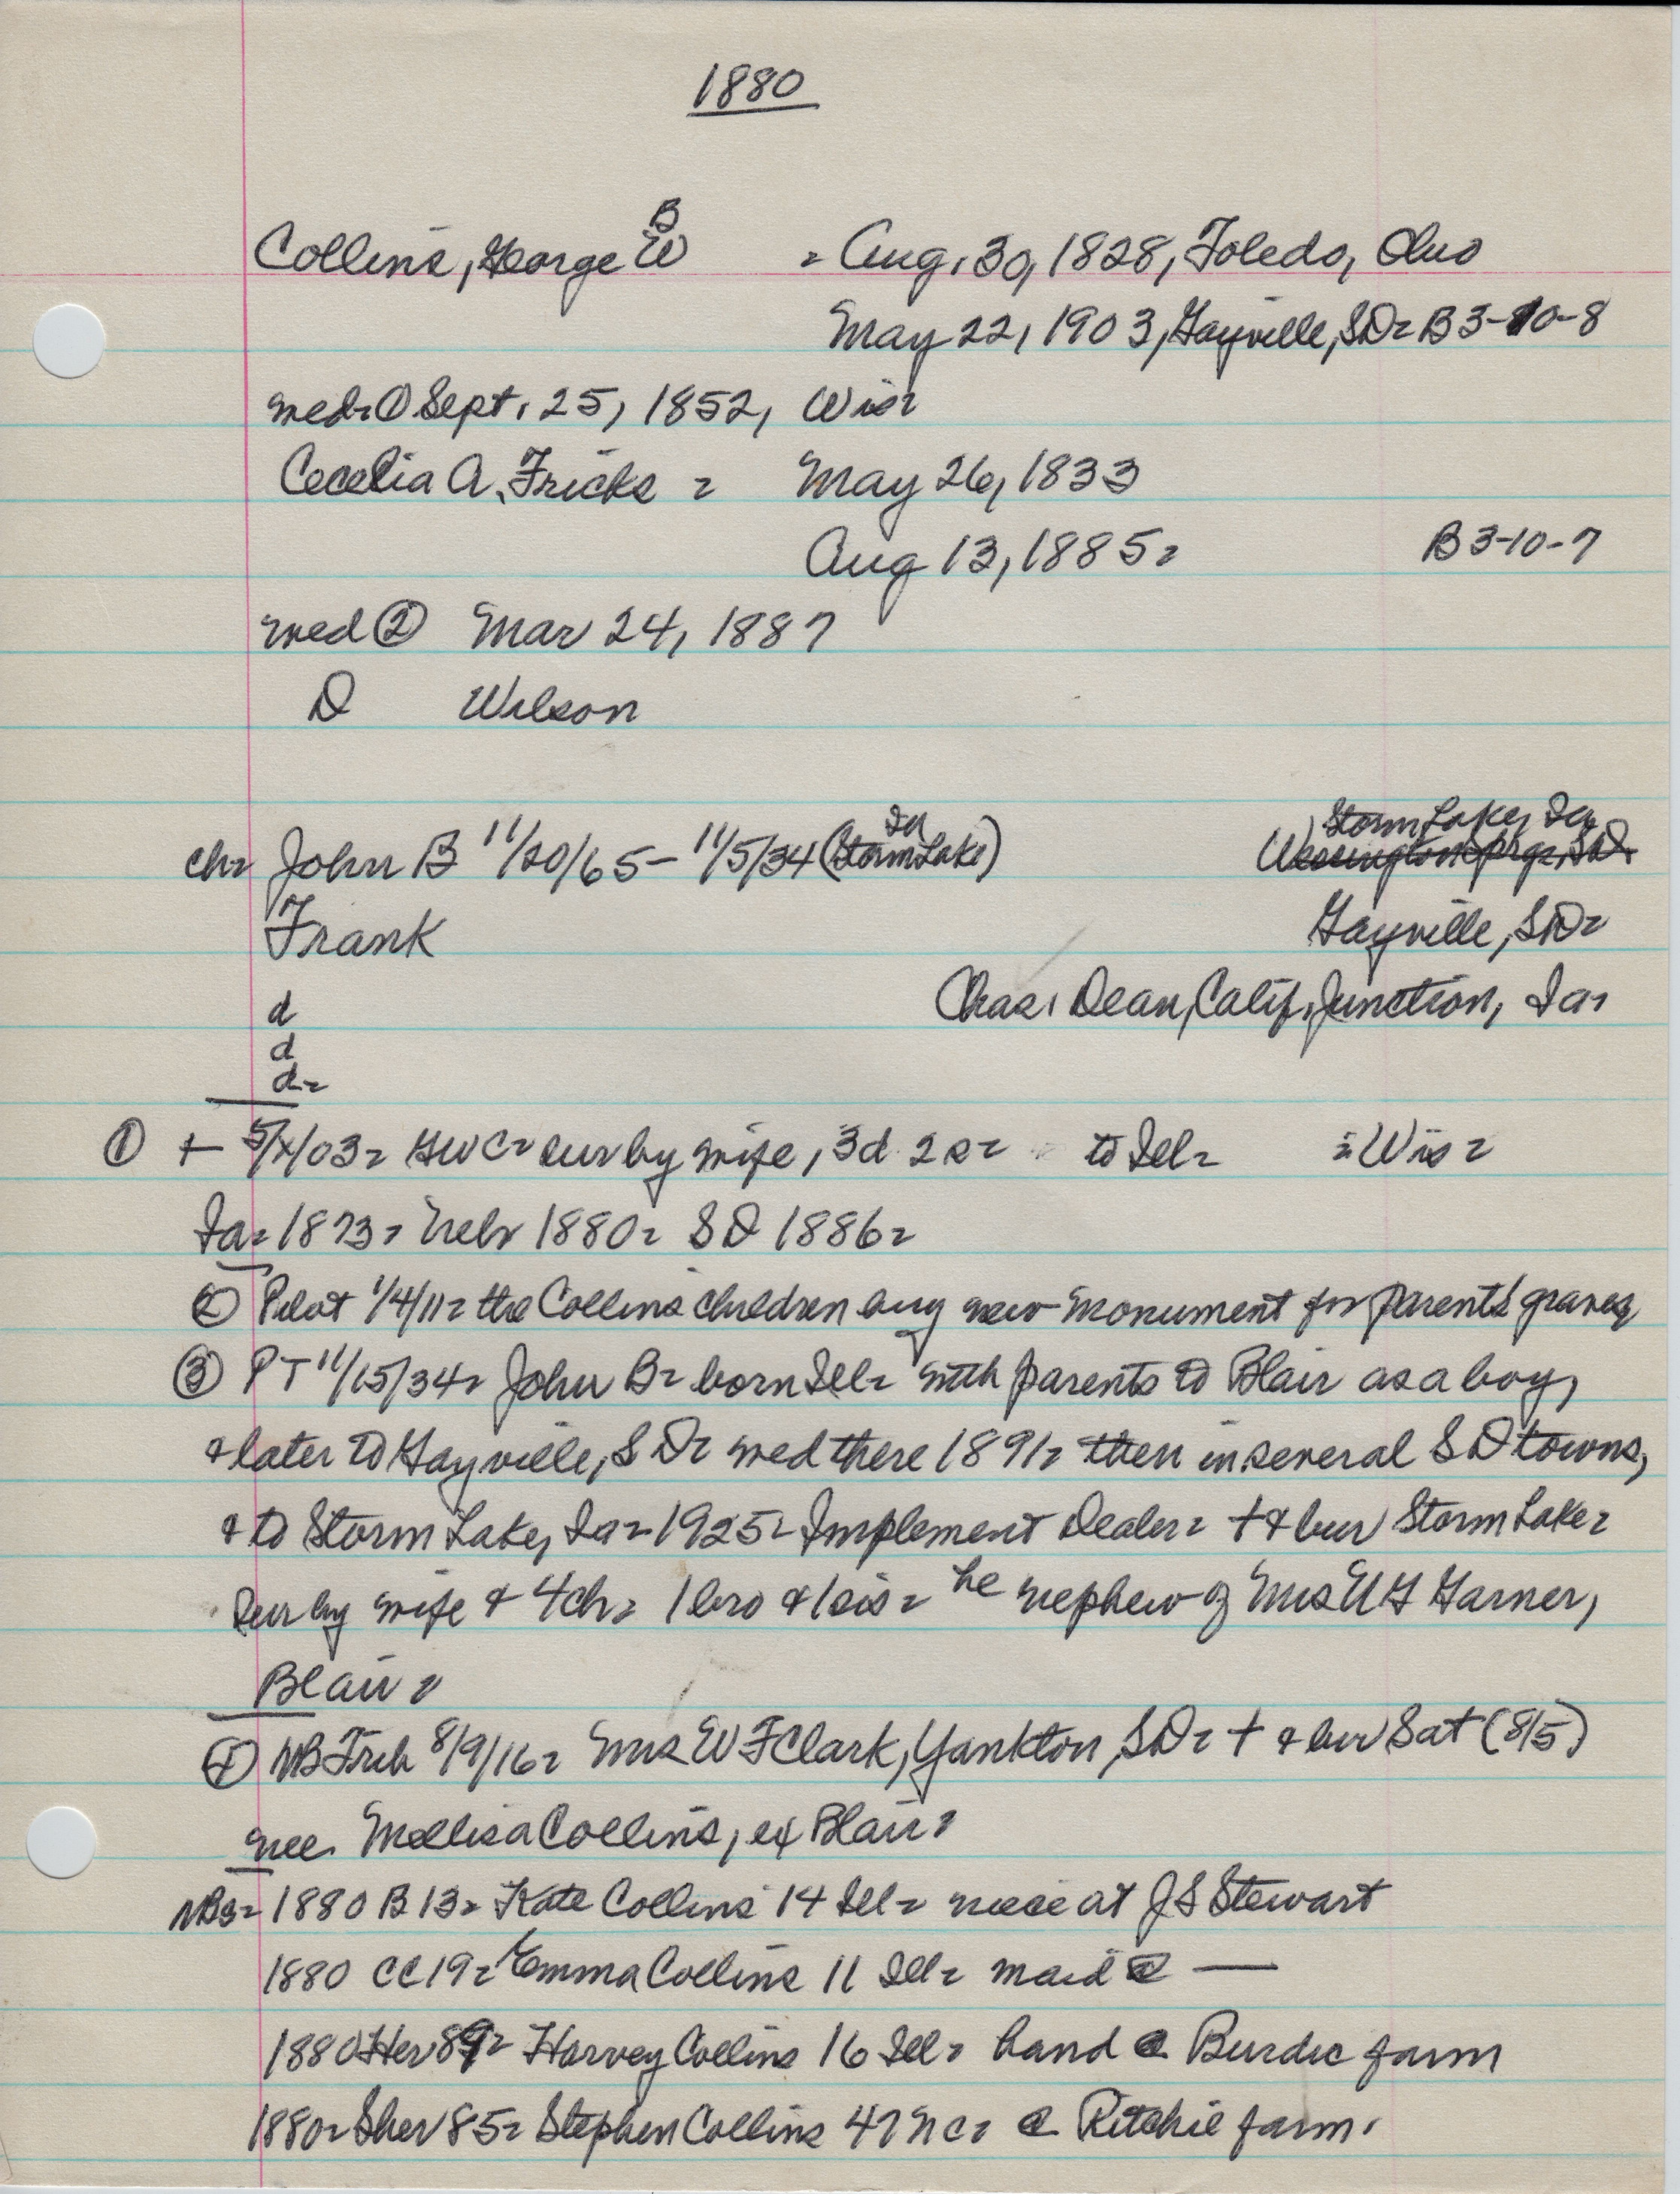 1880
B
Collins, George W = Aug. 30, 1828, Toledo, Ohio
May 22, 1903, Gayville, SD= B3-10-8
med= ① Sept. 25, 1852, Wis=
Cecelia A. Fricks = May 26, 1833
Aug 13, 1885= B3-10-7
med ② Mar 24, 1887
D Wilson
Ia Storm Lake, Ia
ch= John B 11/20/65 - 11/5/34 (Storm Lake) Wessington Sprgs, SD
Frank Gayville, SD=
d Chas. Dean, Calif. Junction, Ia.
d
d=
① + 5/x/03= GWC= sur by wife, 3d 2s= to Ill= = Wis=
Ia= 1873= Neb 1880= SD 1886=
② Pilot 1/4/11= the Collins children buy new monument for parents' graves
③ PT 11/15/34= John B= born Ill= with parents to Blair as a boy,
& later to Gayville, SD= med there 1891= then in several SD towns,
& to Storm Lake, Ia= 1925= Implement Dealer= + & bur Storm Lake=
Sur by wife & 4ch= 1 bro & 1 sis= he nephew of Mrs U G Garner,
Blair=
④ NB Trib 8/9/16= Mrs W F Clark, Yankton, SD= + & bur Sat (8/5)
nee Mellisa Collins, ex Blair=
NBs= 1880 B 13= Kate Collins 14 Ill= niece at J S Stewart
1880 CC 19= Emma Collins 11 Ill= maid @ —
1880 Her 89= Harvey Collins 16 Ill= hand @ Burdic farm
1880= Sher 85= Stephen Collins 47 NC= @ Ritchie farm.